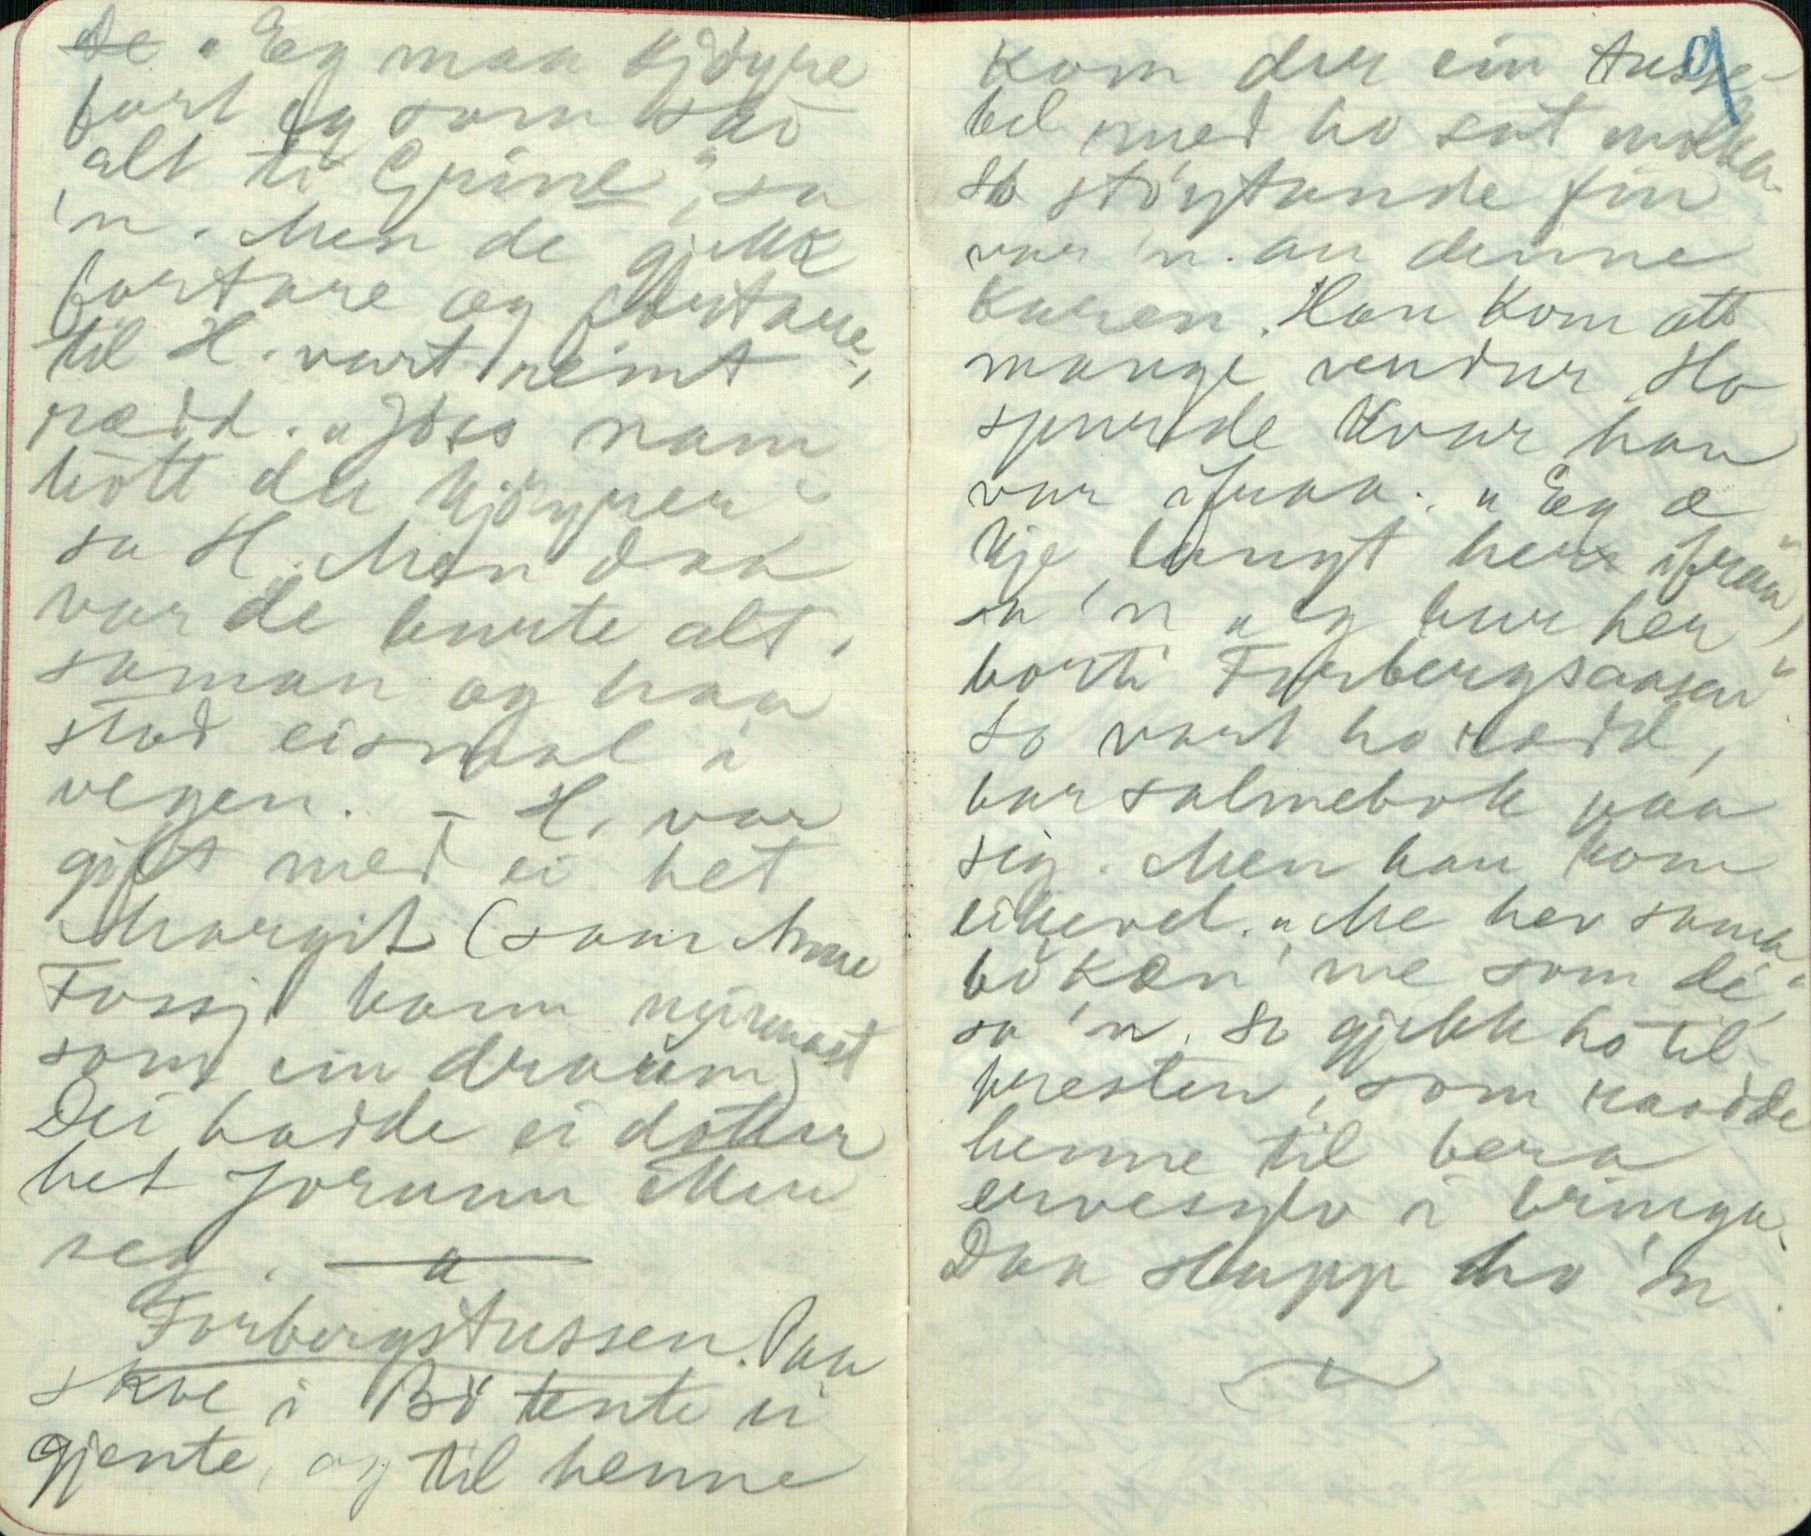 De "Eg maa kjöyre
fort eg som ska
alt ti Grine", sa
'n. Men de gjekk
fortare og fortare,
til H. vart reint
rædd. "Jöss namn
hött du kjöyrer"
sa H. Men daa
var de burte alt,
saman og han
stod eismal i
vegen. – H. var
gift med ei het
Margit (som Anne
Fossj kann
som ein draum)
Dei hadde ei dotter
het Jorunn itten
seg.
Forbergstussen. Paa
Skoe i Bö tente ei
gjente, og til henne
9
kom der ein tusse-
bel med ho sat molka.
So stöytande fin
var 'n. au denne
karen. Han kom att
mange vendur. Ho
spurde kvar han
var ifraa. "Eg æ
kje langt her ifraa",
sa 'n "eg bur her
borti Forbergsaasen"
So vart ho rædd,
bar salmebok paa
sig. Men han kom
likevel. "Me hev sama
boken me som de"
sa 'n. So gjekk ho til
presten, som raadde
henne til bera
ervesylv i bringa.
Daa slapp ho 'n.